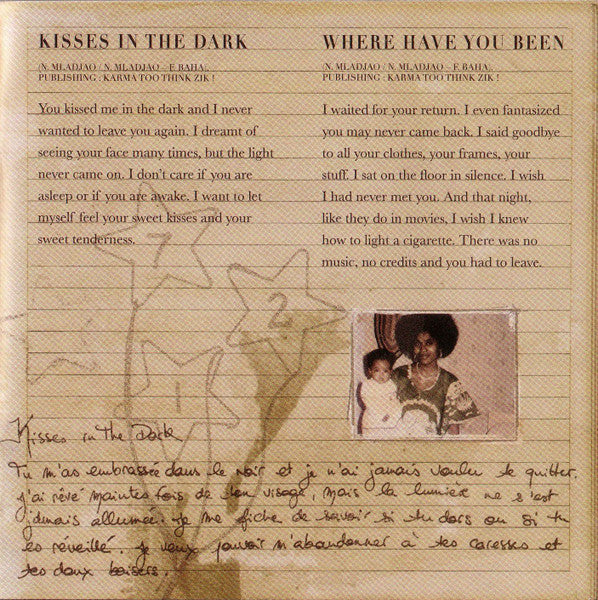 KISSES IN THE DARK
(N. MLADJAO / N. MLADJAO - F. BAHA).
PUBLISHING : KARMA TOO THINK ZIK !
You kissed me in the dark and I never
wanted to leave you again. I dreamt of
seeing your face many times, but the light
never came on. I don't care if you are
asleep or if you are awake. I want to let
myself feel your sweet kisses and your
sweet tenderness.
WHERE HAVE YOU BEEN
(N. MLADJAO / N. MLADJAO - F. BAHA).
PUBLISHING : KARMA TOO THINK ZIK !
I waited for your return. I even fantasized
you may never came back. I said goodbye
to all your clothes, your frames, your
stuff. I sat on the floor in silence. I wish
I had never met you. And that night,
like they do in movies, I wish I knew
how to light a cigarette. There was no
music, no credits and you had to leave.
7
2
1
Kisses in the Dark
Tu m'as embrassée dans le noir et je n'ai jamais voulu te quitter.
J'ai rêvé maintes fois de ton visage, mais la lumière ne s'est
jamais allumée. Je me fiche de savoir si tu dors ou si tu
es réveillé. Je veux pouvoir m'abandonner à tes caresses et
tes doux baisers.